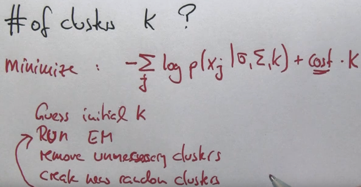 # of clusters k ?
minimize : - Σ_j log p(x_j | σ, Σ, k) + cost · k
Guess initial k
RUN EM
remove unnecessary clusters
create new random clusters